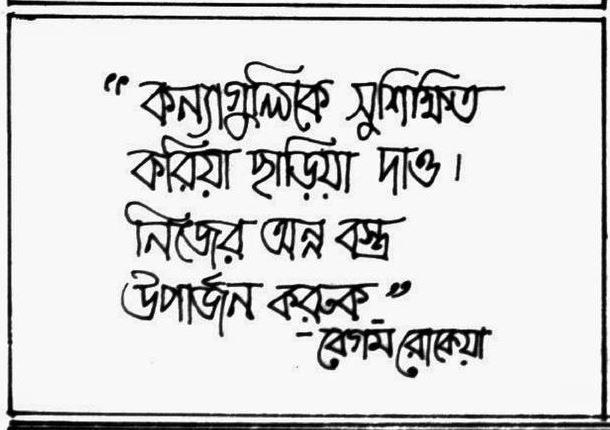 “কন্যাগুলিকে সুশিক্ষিত
করিয়া ছাড়িয়া দাও।
নিজের অন্ন বস্ত্র
উপার্জন করুক”
- বেগম রোকেয়া